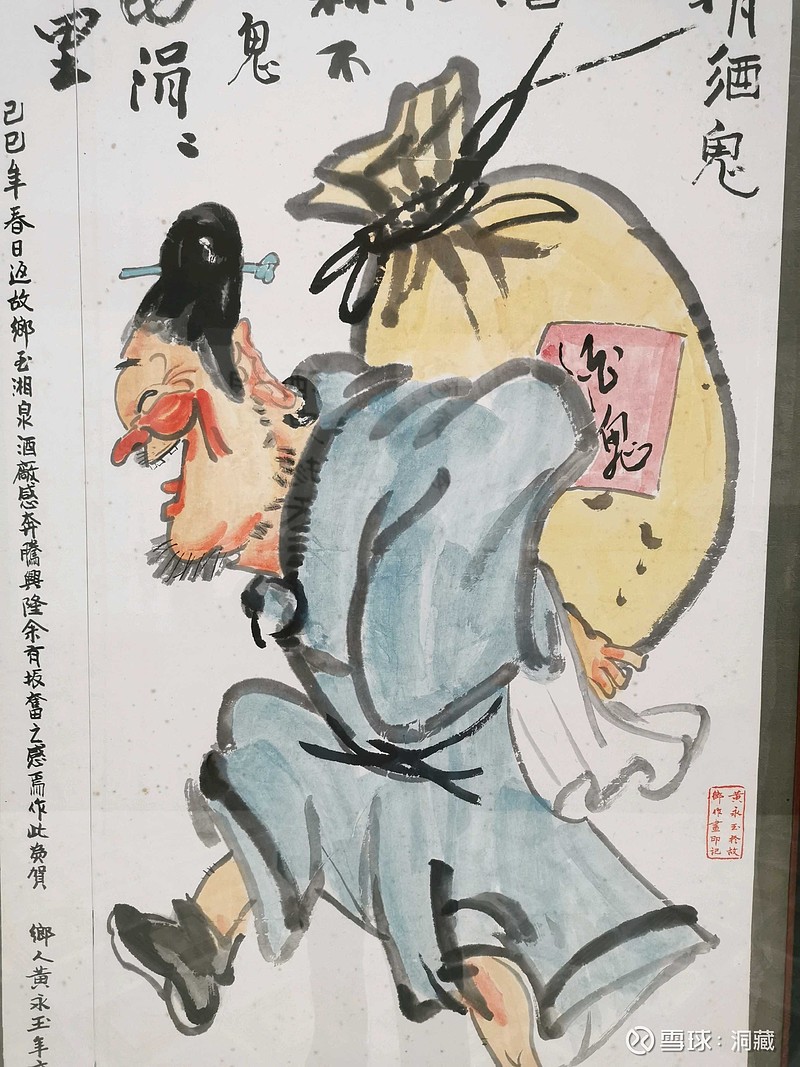 酒鬼
不
鬼
涓〻
里
己巳年春日返故鄉至湘泉酒廠感奔騰興隆余有振奮之感焉作此為賀 鄉人黃永玉年
酒鬼
黃永玉於故
鄉作畫印记
雪球：洞藏